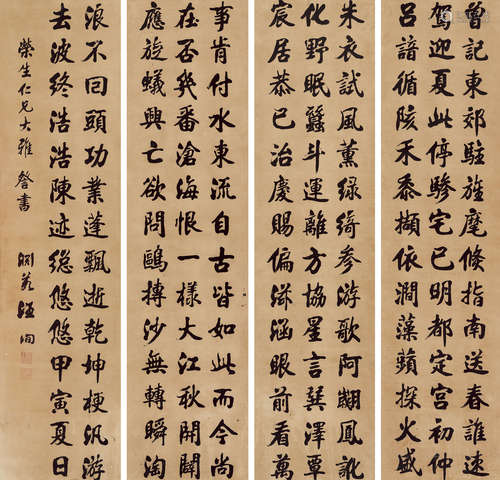 曾記東郊駐旌麾倏指南送春誰速
駕迎夏此停驂宅已明都定宮初仲
呂諳循陔禾黍擷依澗藻蘋探火盛
朱衣試風薰綠綺參游歌阿翽鳳訛
化野眠蠶斗運離方協星言巽澤覃
宸居恭已治慶賜偏滋涵眼前看萬
事肯付水東流自古皆如此而今尚
在否幾番滄海恨一樣大江秋開闢
應旋蟻興亡欲問鷗摶沙無轉瞬淘
浪不回頭功業蓬飄逝乾坤梗汎游
去波終浩浩陳迹總悠悠甲寅夏日
榮生仁兄大雅詧書 淵若汪洵